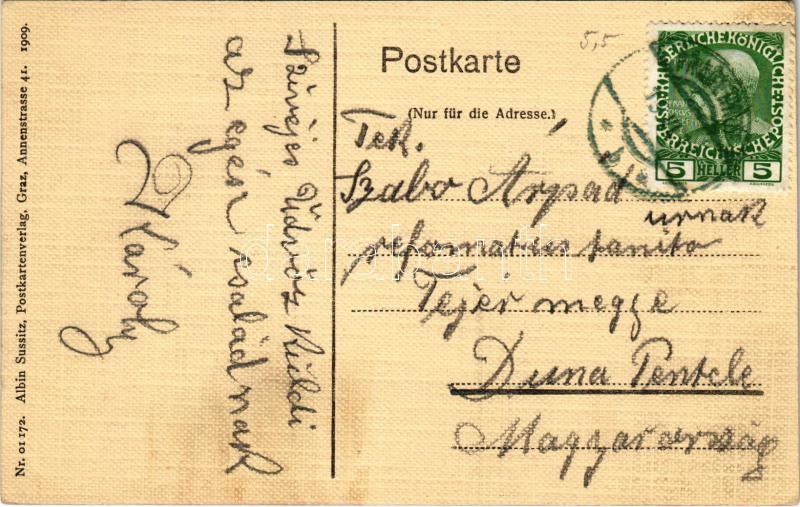 Nr. 01172. Albin Sussitz, Postkartenverlag, Graz, Annenstrasse 41. 1909.
Szivéjes Üdvöz Küldi
az egész családnak
Károly
Postkarte
(Nur für die Adresse.)
5,5
KAISERLICHEKÖNIGLICHE
ÖSTERREICHISCHEPOST
5 HELLER 5
Tek.
Szabo Árpád
urnak
refomatus tanito
Tejér megye
Duna Pentele
Magyarorság
darabanth